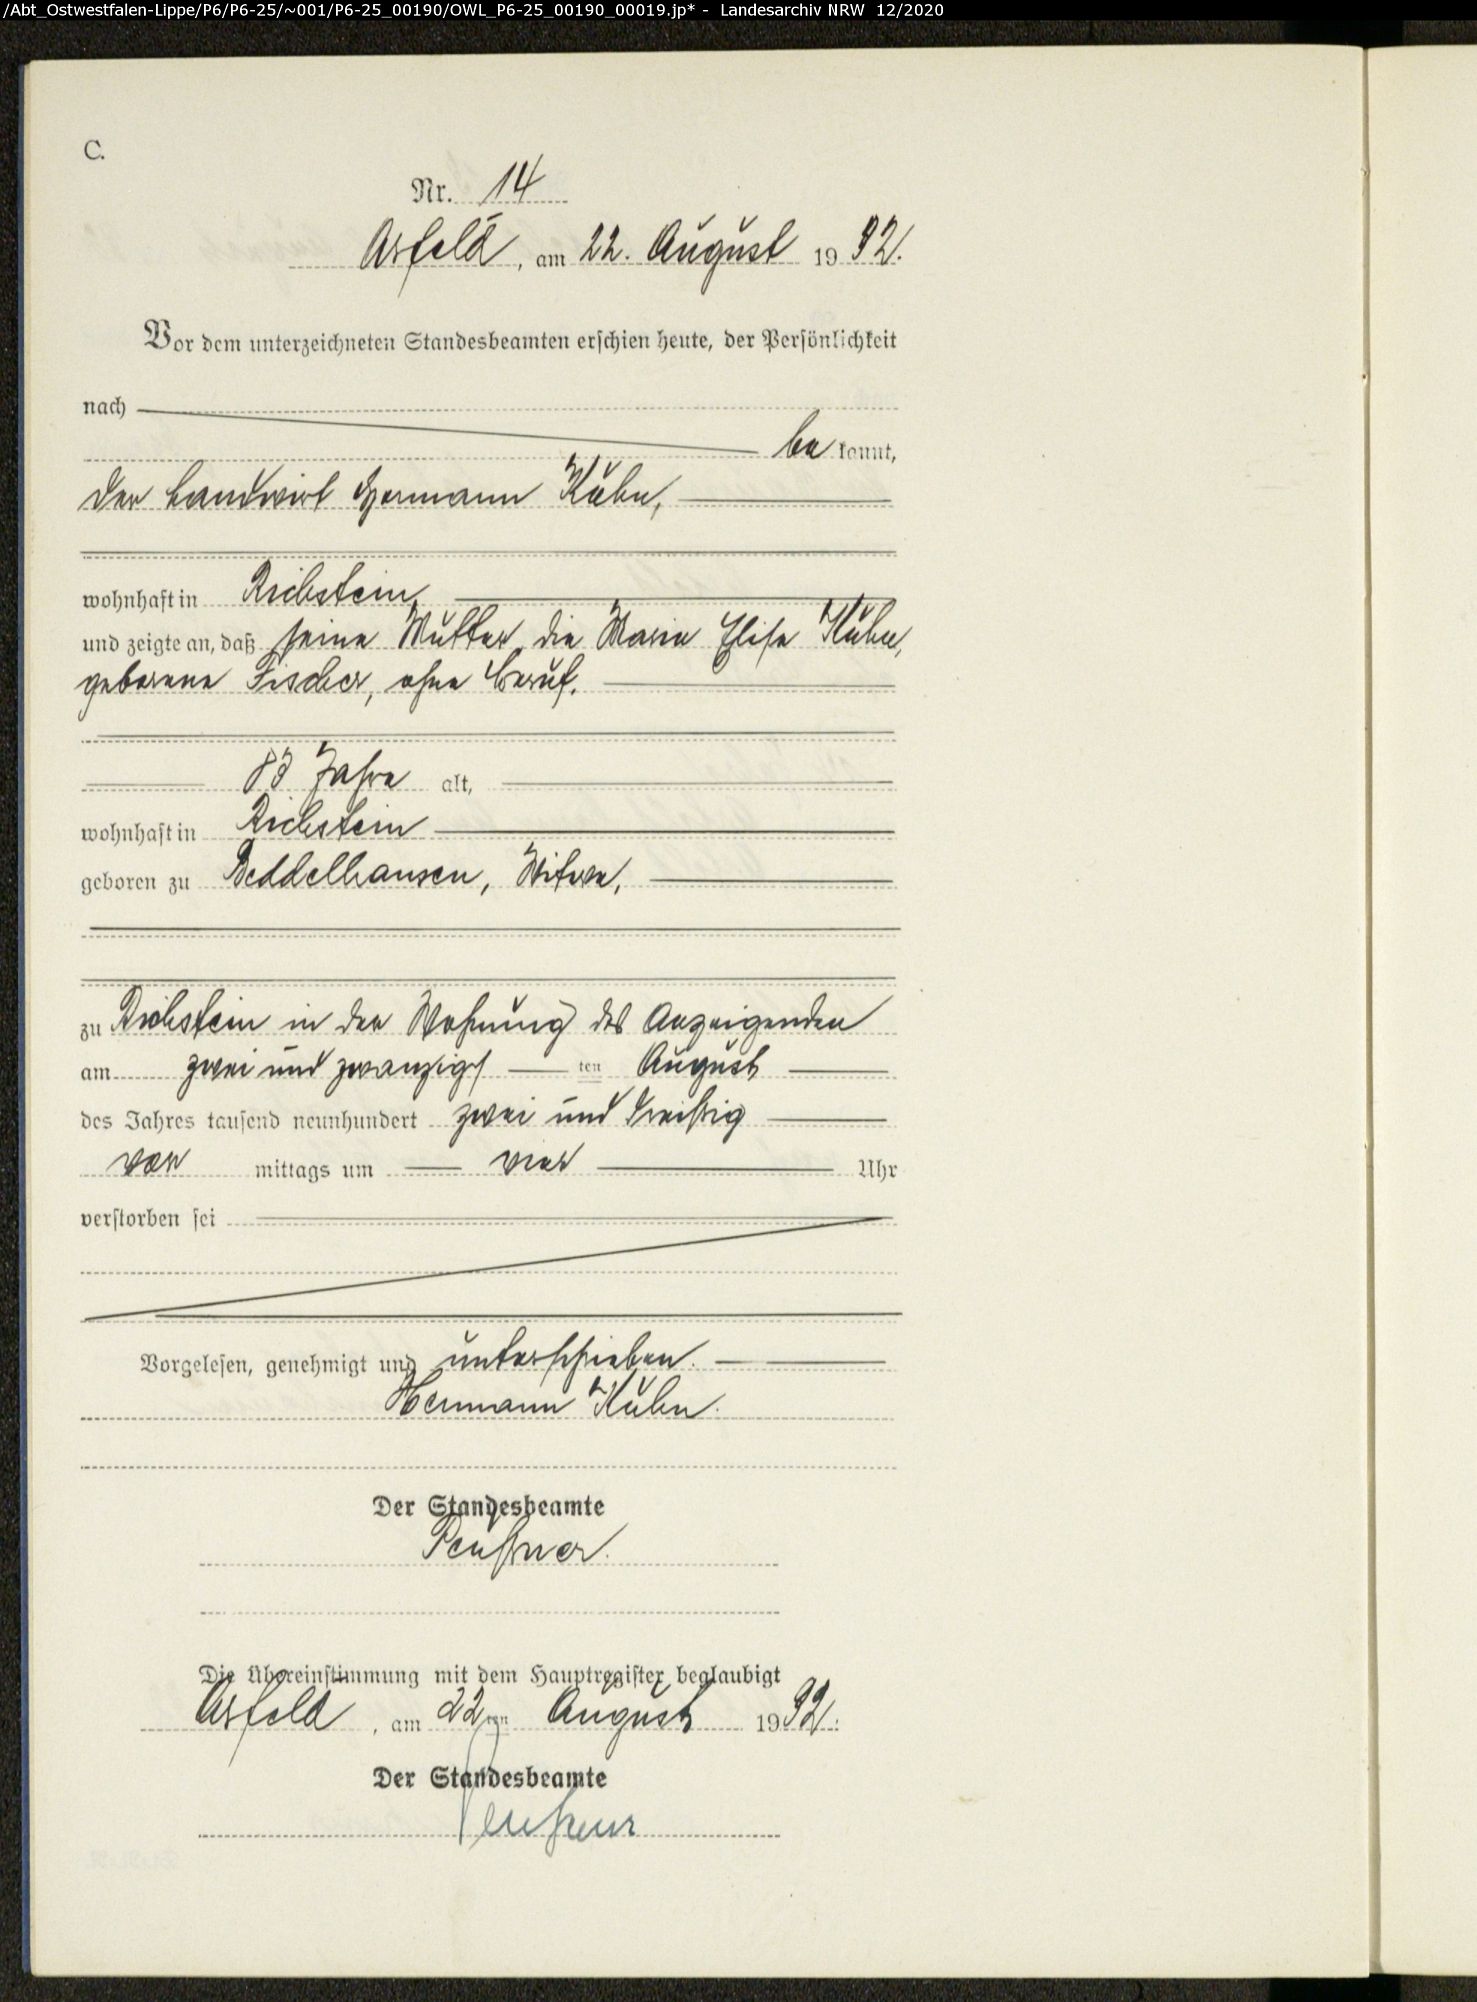 /Abt_Ostwestfalen-Lippe/P6/P6-25/~001/P6-25_00190/OWL_P6-25_00190_00019.jp* - Landesarchiv NRW 12/2020
C.
Nr. 14
Arfeld, am 22. August 1932.
Vor dem unterzeichneten Standesbeamten erschien heute, der Persönlichkeit
nach
be kannt,
der Landwirt Hermann Kuhn,
wohnhaft in Richstein,
und zeigte an, daß seine Mutter, die Marie Elise Kuhn,
geborene Fischer, ohne Beruf,
83 Jahre alt,
wohnhaft in Richstein
geboren zu Beddelhausen, Witwe,
zu Richstein in der Wohnung des Anzeigenden
am zwei und zwanzigsten August
des Jahres tausend neunhundert zwei und dreißig
vor mittags um vier Uhr
verstorben sei
Vorgelesen, genehmigt und unterschrieben.
Hermann Kuhn.
Der Standesbeamte
Die Übereinstimmung mit dem Hauptregister beglaubigt
Arfeld, am 22ten August 1932.
Der Standesbeamte